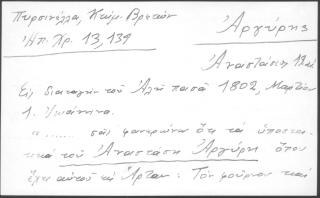 Πυρσινέλλα, Κτώμ. Βρετών
Ἠπ. Χρ. 13, 139
Ἀργύρης
Ἀναστάσης
Εἰς διαταγὴν τοῦ Ἀλῆ πασᾶ 1802, Μαρτίου
1. Ἰωάννινα.
"...... σᾶς φανερώνω ὅτι τὰ ὑποστα-
τικὰ τοῦ Ἀναστάση Ἀργύρη ὅπου
ἔχει αὐτοῦ εἰς Ἄρταν: Τὸν φοῦρνον καὶ